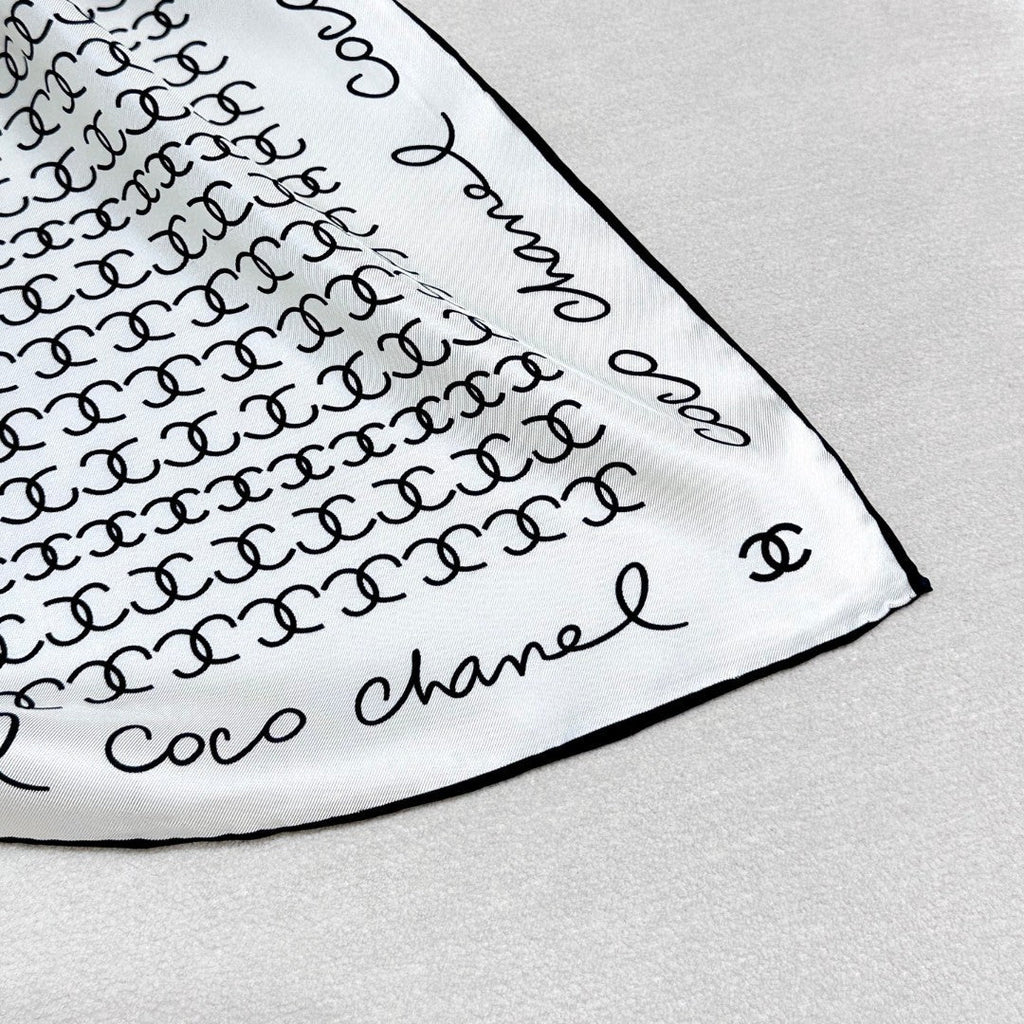 Coco
Chanel
Coco
Coco Chanel